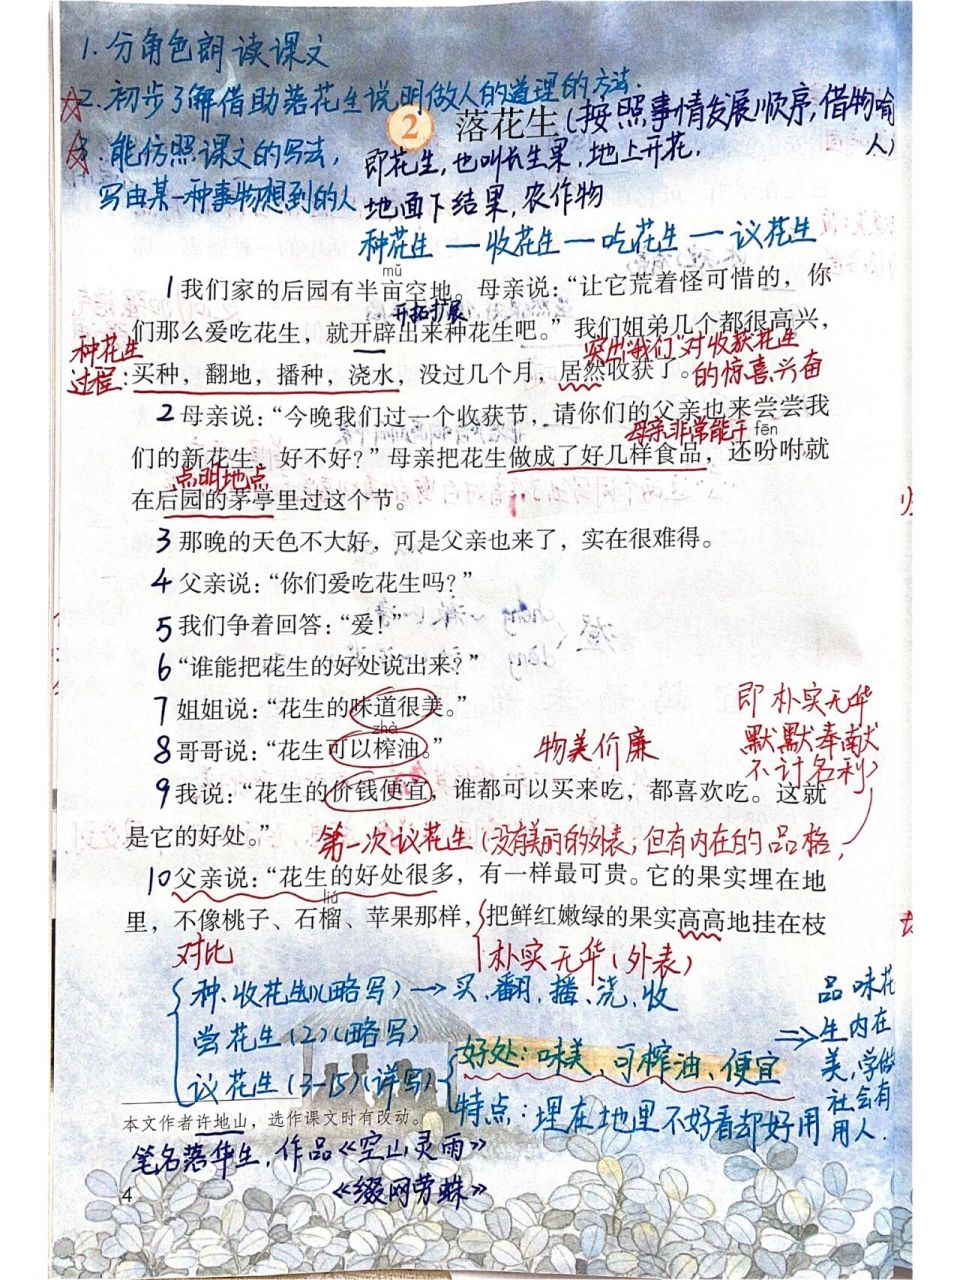 1.分角色朗读课文
☆2.初步了解借助落花生说明做人的道理的方法.
2 落花生(按照事情发展顺序,借物喻人)
☆3.能仿照课文的写法,
写由某一种事物想到的人
即花生,也叫长生果,地上开花,
地面下结果,农作物
种花生—收花生—吃花生—议花生
mǔ
1我们家的后园有半亩空地。母亲说:“让它荒着怪可惜的,你
开拓扩展
们那么爱吃花生,就开辟出来种花生吧。”我们姐弟几个都很高兴,
种花生
过程:
突出“我们”对收获花生
的惊喜兴奋
买种,翻地,播种,浇水,没过几个月,居然收获了。
2母亲说:“今晚我们过一个收获节,请你们的父亲也来尝尝我
母亲非常能干
fēn
们的新花生,好不好?”母亲把花生做成了好几样食品,还吩咐就
点明地点
在后园的茅亭里过这个节。
3那晚的天色不大好,可是父亲也来了,实在很难得。
4父亲说:“你们爱吃花生吗?”
5我们争着回答:“爱!”
6“谁能把花生的好处说出来?”
7姐姐说:“花生的味道很美。”
zhà
8哥哥说:“花生可以榨油。”
物美价廉
即朴实无华
默默奉献
不计名利)
9我说:“花生的价钱便宜,谁都可以买来吃,都喜欢吃。这就
是它的好处。”
第一次议花生(没有美丽的外表,但有内在的品格,
10父亲说:“花生的好处很多,有一样最可贵。它的果实埋在地
liú
里,不像桃子、石榴、苹果那样,把鲜红嫩绿的果实高高地挂在枝
对比
朴实无华(外表)
种、收花生(1)(略写)→买、翻、播、浇、收
尝花生(2)(略写)
议花生(3-15)(详写)
好处:味美、可榨油、便宜
特点:埋在地里不好看却好用
⇒
品味花
生内在
美,学做
社会有
用人.
本文作者许地山,选作课文时有改动。
笔名落华生,作品《空山灵雨》
《缀网劳蛛》
4